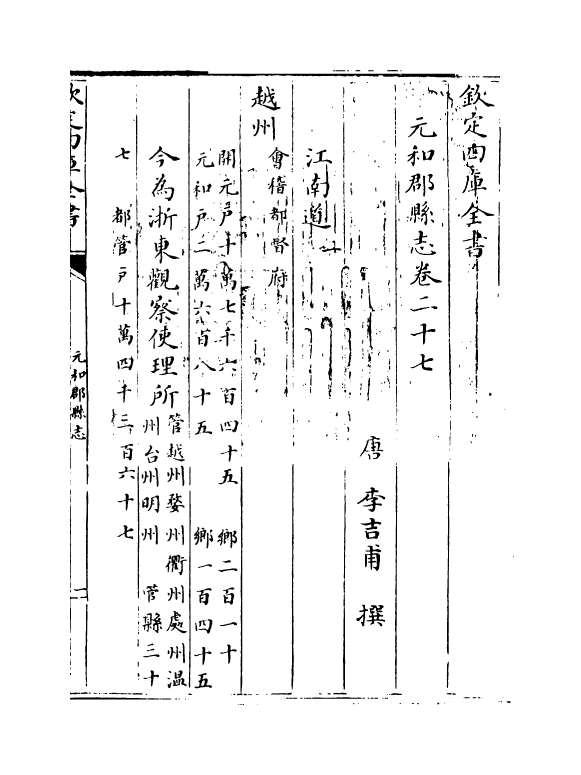 欽定四庫全書
元和郡縣志卷二十七
唐 李吉甫 撰
江南道
越州
會稽都督府
開元戸十萬七千六百四十五 鄉二百一十
元和戸二萬六百八十五 鄉一百四十五
今為浙東觀察使理所
管越州婺州衢州處州温
州台州明州 管縣三十
七 都管戸十萬四千三百六十七
元和郡縣志